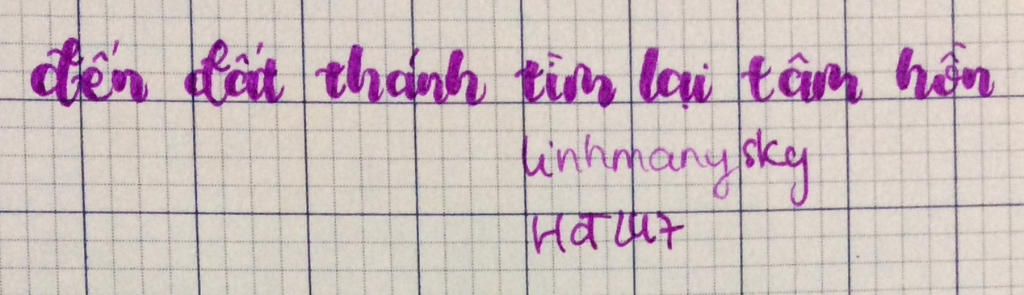 đến đất thánh tìm lại tâm hồn
linhmanysky